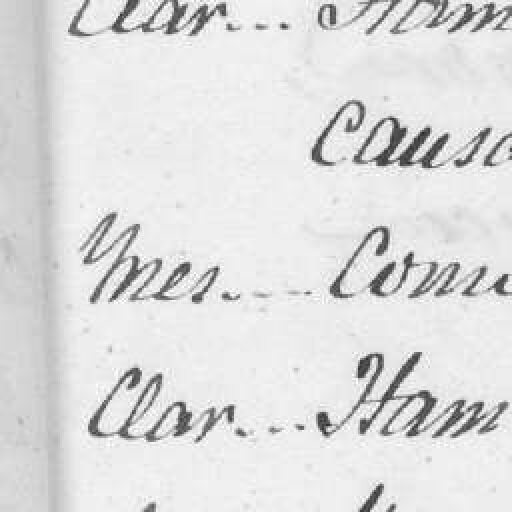 Clar... Ham
Causa
Ynes.... Comu
Clar... Ham